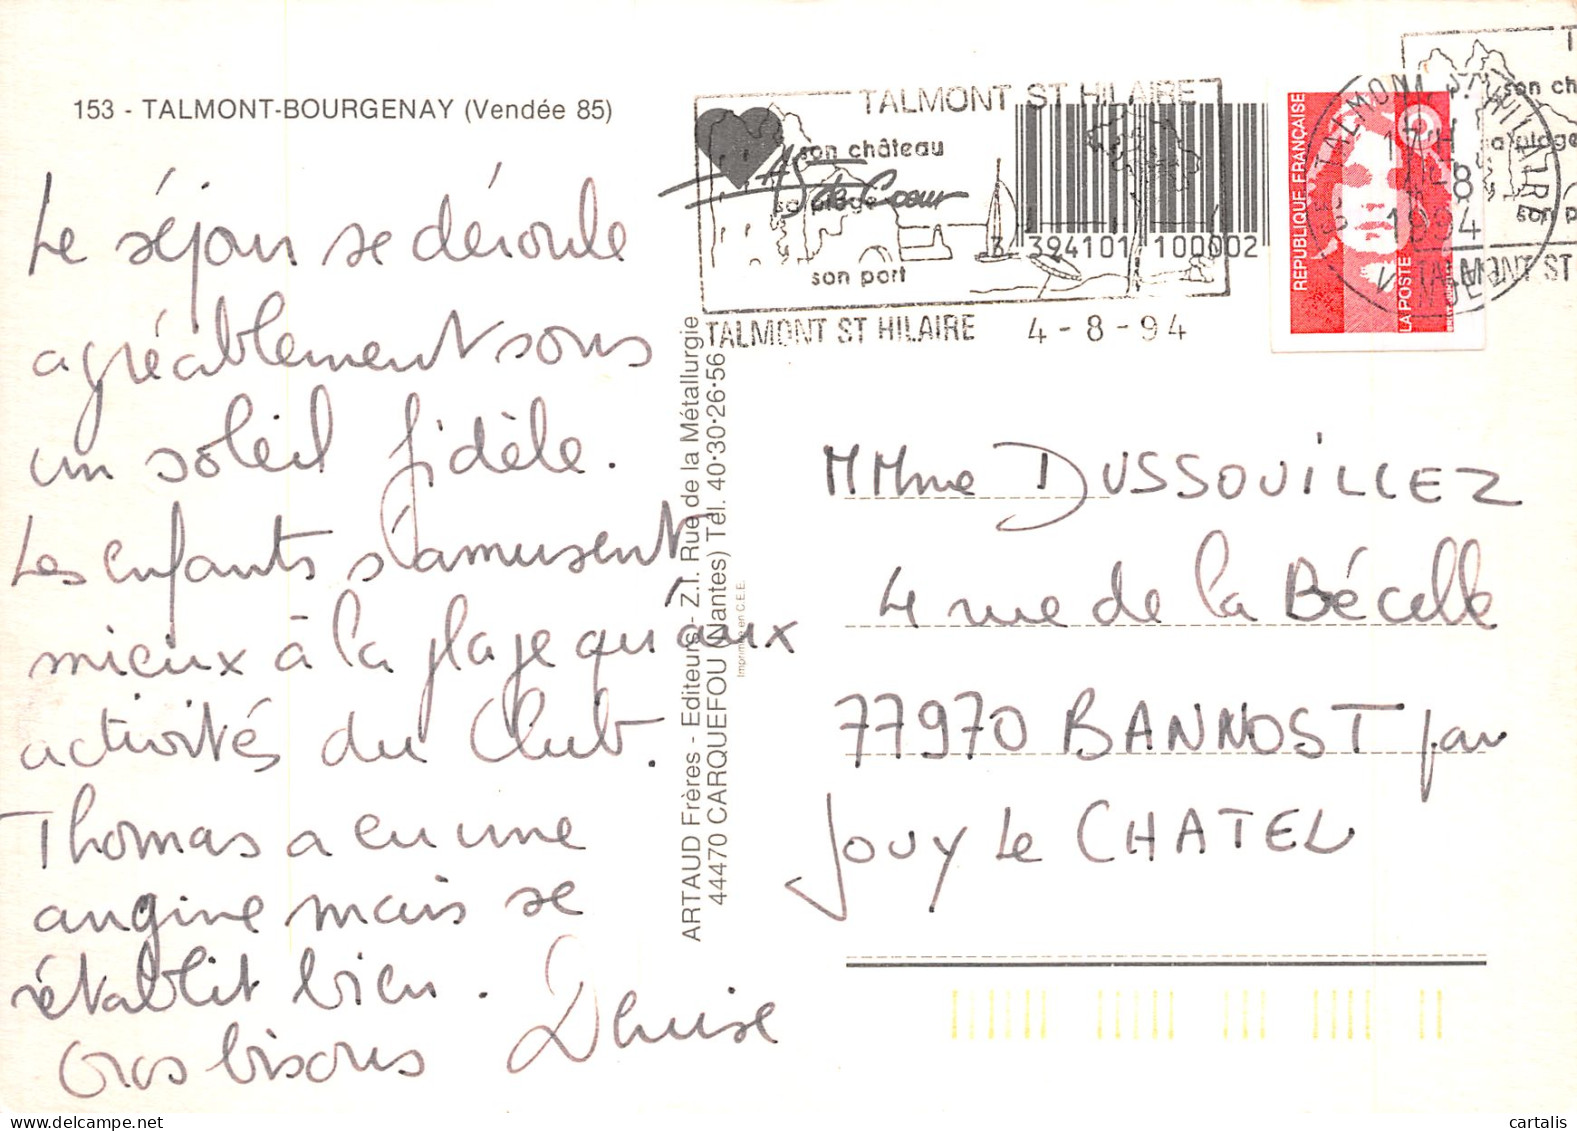 153 - TALMONT-BOURGENAY (Vendée 85)
Le séjour se déroule
agréablement sous
un soleil fidèle.
Les enfants s'amusent
mieux à la plage qu'aux
activités du Club.
Thomas a eu une
angine mais se
rétablit bien.
Gros bisous
ARTAUD Frères - Editeurs - Z.I. Rue de la Métallurgie
44470 CARQUEFOU (Nantes) Tél. 40·30·26·56
Imprimé en C.E.E.
TALMONT ST HILAIRE
son château
sa plage
son port
As de Coeur
3 394101 100002
TALMONT ST HILAIRE 4-8-94
RÉPUBLIQUE FRANÇAISE
LA POSTE
TALMONT ST HILAIRE
1994
M Mme DUSSOUILLEZ
4 rue de la Bécelle
77970 BANNOST par
Jouy Le CHATEL
cartalis